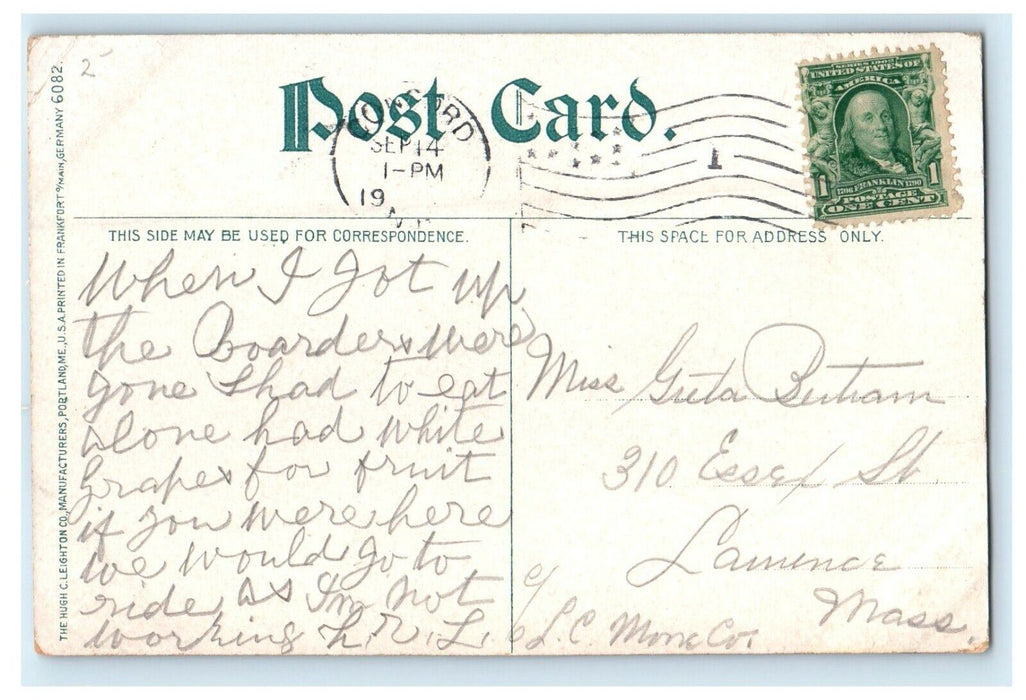 2
Post Card.
CONCORD
SEP 14
1-PM
19
N.H.
1
SERIES 1902
UNITED STATES OF
AMERICA
1706 FRANKLIN 1790
1 POSTAGE 1
ONE CENT
THE HUGH C. LEIGHTON CO., MANUFACTURERS, PORTLAND, ME., U.S.A. PRINTED IN FRANKFORT o/MAIN, GERMANY 6082.
THIS SIDE MAY BE USED FOR CORRESPONDENCE.
When I got up
the Boarders were
gone I had to eat
alone had white
Grapes for fruit
if you were here
we would go to
ride, as I'm not
working
THIS SPACE FOR ADDRESS ONLY.
Miss
310 Essex St
Lawrence
Mass.
c/o L.C. Co.